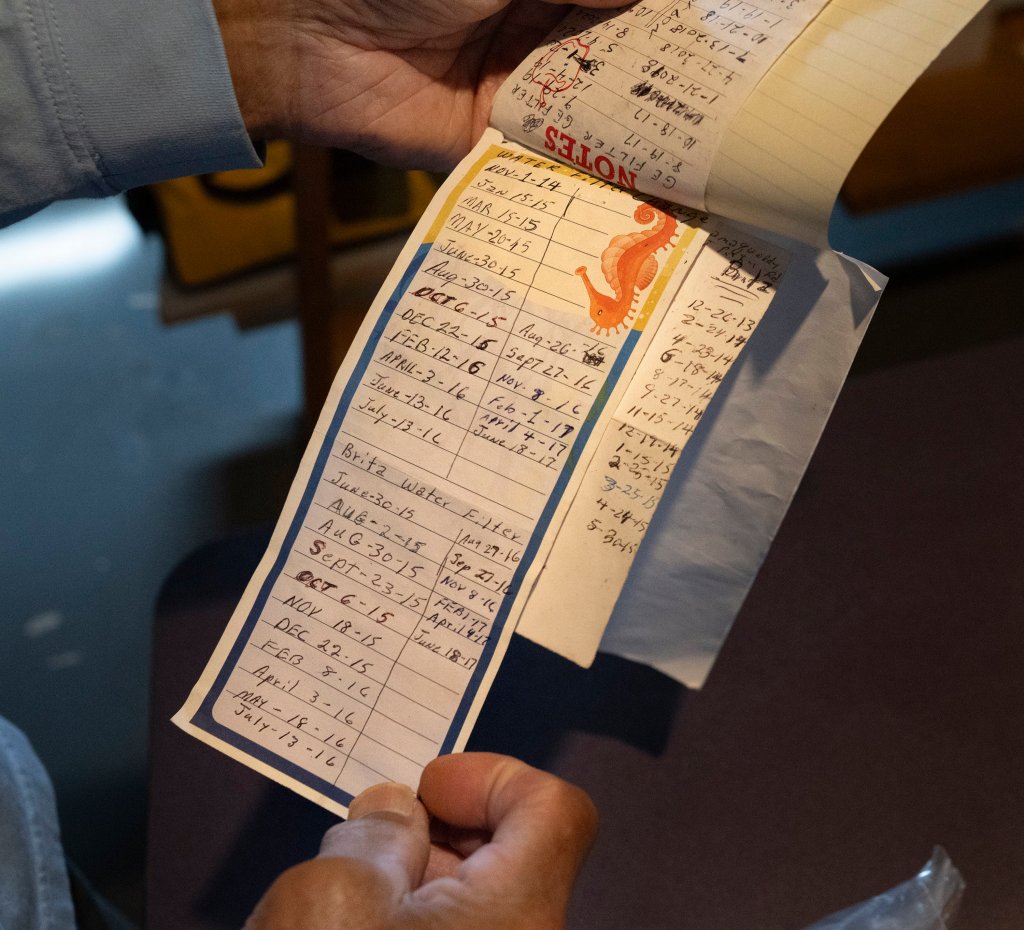 GE FILTER
1-19-19
10-21-18
7-13-2018
4-27-2018
1-21-2018
10-18-17
8-19-17
GE FILTER
NOTES
WATER
NOV-1-14
JAN 15-15
MAR 15-15
MAY-20-15
June-30-15
Aug-30-15
OCT 6-15
DEC 22-15
FEB-12-16
APRIL-3-16
June-13-16
July-13-16
Aug-26-16
Sept 27-16
Nov. 8-16
Feb-1-17
April 4-17
June 18-17
Brita Water Filter
June-30-15
AUG-2-15
AUG-30-15
Sept-23-15
OCT 6-15
NOV 18-15
DEC 22-15
FEB 8-16
April 3-16
MAY-18-16
July-13-16
Aug 29-16
Sep 27-16
NOV 8-16
FEB 1-17
April 4-17
June 18-17
12-26-13
2-24-14
4-23-14
6-18-14
8-17-14
9-27-14
11-15-14
12-19-14
1-15-15
2-25-15
3-25-15
4-24-15
5-30-15